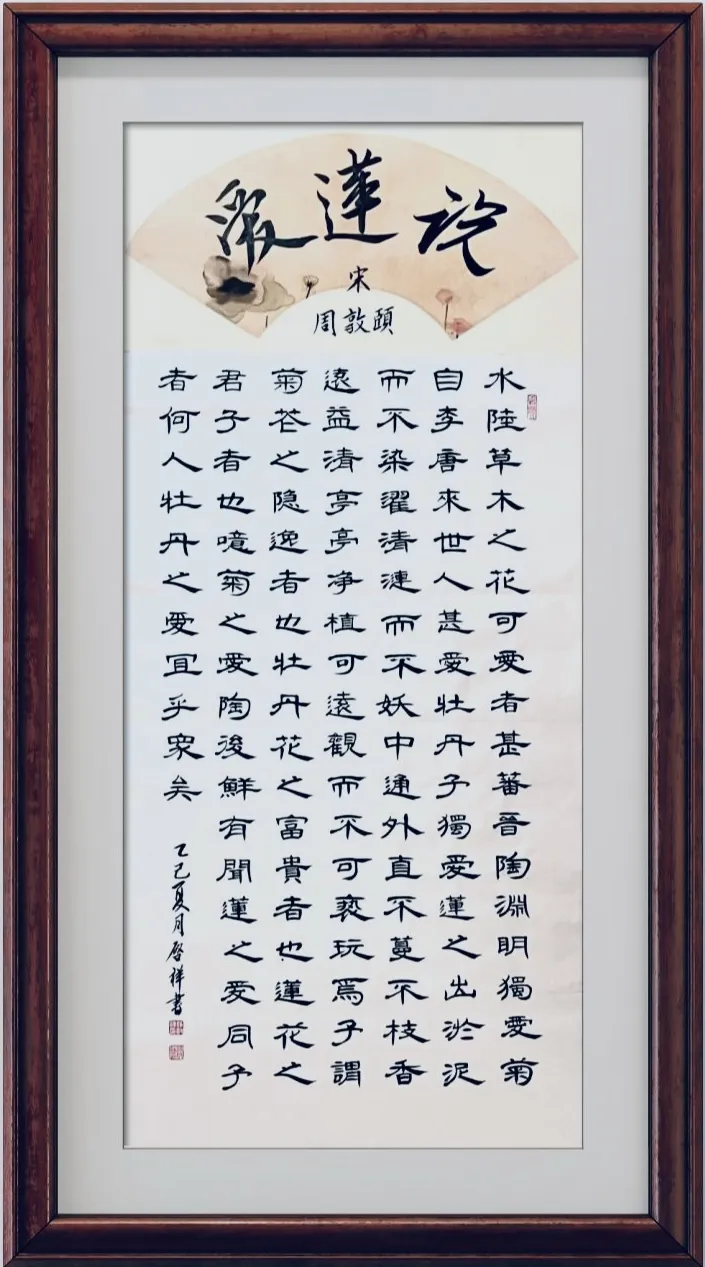 愛蓮説
宋
周敦頤
水陸草木之花可愛者甚蕃晉陶淵明獨愛菊
自李唐來世人甚愛牡丹予獨愛蓮之出淤泥
而不染濯清漣而不妖中通外直不蔓不枝香
遠益清亭亭净植可遠觀而不可褻玩焉予謂
菊花之隐逸者也牡丹花之富貴者也蓮花之
君子者也噫菊之愛陶後鮮有聞蓮之愛同予
者何人牡丹之愛宜乎眾矣
乙巳夏月啓祥書